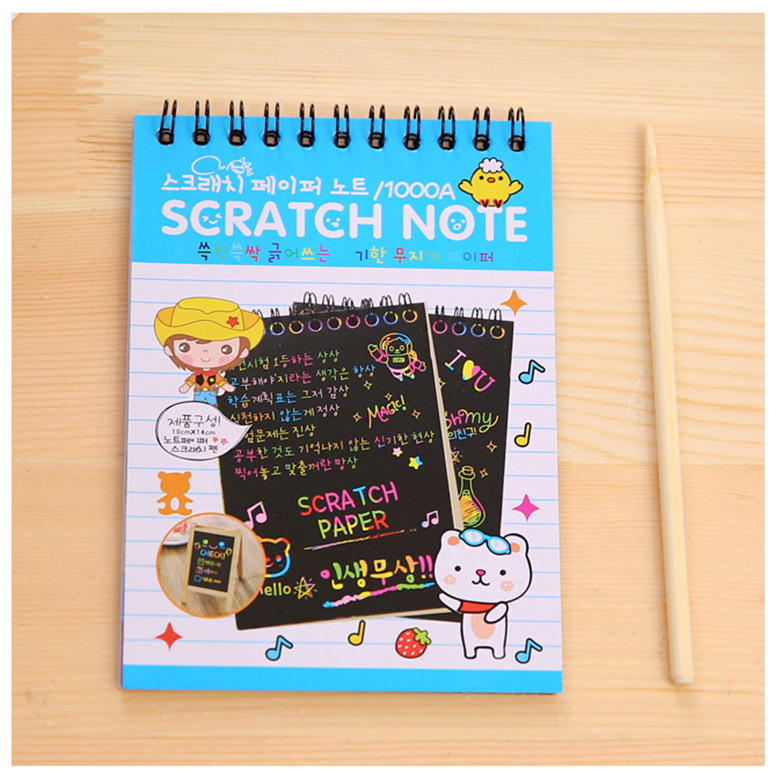 스크래치 페이퍼 노트 /1000A
SCRATCH NOTE
쓱싹쓱싹 긁어쓰는 기한 무지개 페이퍼
시험 1등하는 상상
공부해야지라는 생각은 항상
학습계획표는 그저 감상
실천하지 않는게 정상
문제는 진상
공부한 것도 기억나지 않는 신기한 현상
찍어놓고 맞출꺼란 망상
MAGIC!
SCRATCH
PAPER
Hello
인생무상!!
I U
Oh my
제품구성!
10cmX14cm
노트페이퍼
스크래치 펜
CHECK!